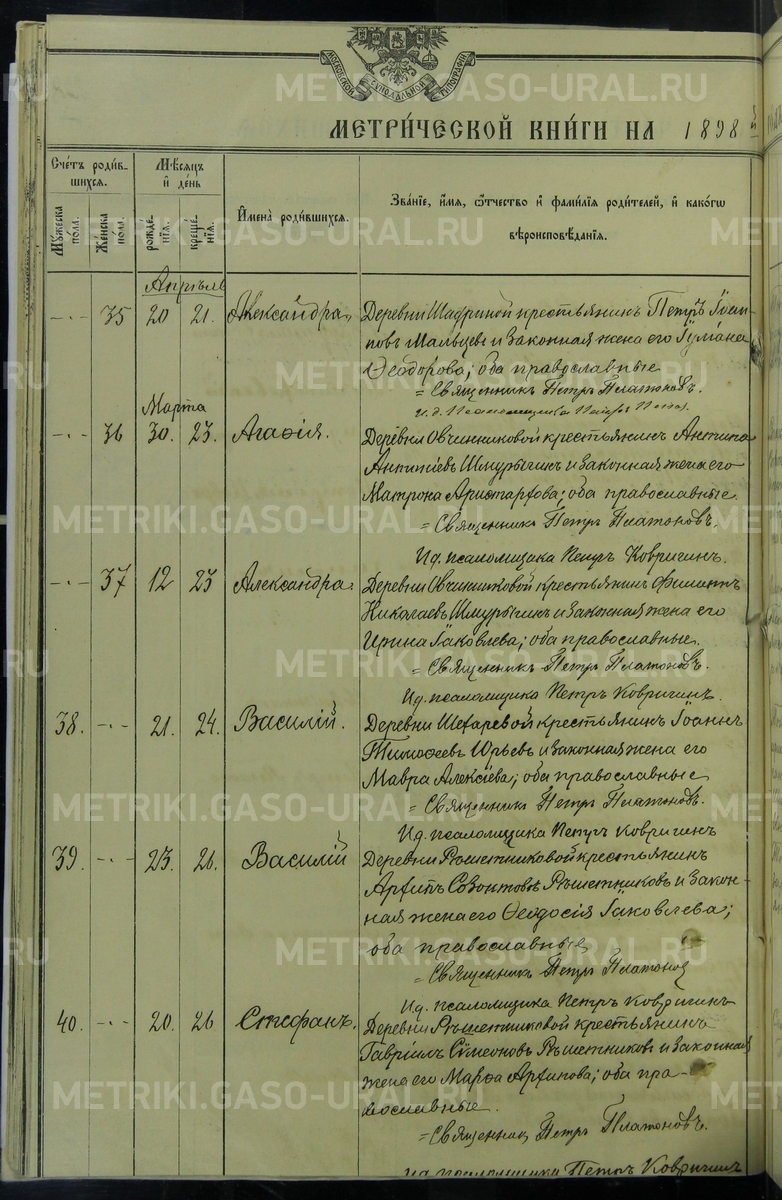 МОСКОВСКОЙ СѴНОДАЛЬНОЙ ТИПОГРАФІИ
МЕТРИЧЕСКОЙ КНИГИ НА 1898
Счетъ родив-
шихся.
Мѣсяцъ
и день
Имена родившихся.
Званіе, имя, ѿтчество и фамилія родителей, и какогѡ
вѣроисповѣданія.
Мужеска
пола.
Женска
пола.
рожде-
нія.
креще-
нія.
Апрѣль
-"- 35 20 21. Александра. Деревни Шадриной крестьянинъ Петръ Іоан-
новъ Мальцевъ и законная жена его
Ѳеодорова; оба православные
= Священникъ Петръ Платоновъ.
и. д. Псаломщика
Марта
-"- 36 30. 23. Агаѳія. Деревни Овчинниковой крестьянинъ Антипа
Антипіевъ Шмурыгинъ и законная жена его
Матрона Аристархова; оба православные.
= Священникъ Петръ Платоновъ.
Ид. псаломщика Петръ Ковригинъ.
-"- 37 12 23 Александра. Деревни Овчинниковой крестьянинъ Филиппъ
Николаевъ Шмурыгинъ и законная жена его
Ирина Іаковлева; оба православные.
= Священникъ Петръ Платоновъ.
Ид. псаломщика Петръ Ковригинъ.
38. -"- 21. 24. Василій. Деревни крестьянинъ Іоаннъ
Тимоѳеевъ Юрьевъ и законная жена его
Мавра Алексіева; оба православные
= Священникъ Петръ Платоновъ.
Ид. псаломщика Петръ Ковригинъ
39. -"- 23. 26. Василій Деревни Рѣшетниковой крестьянинъ
Созонтовъ Рѣшетниковъ и закон-
ная жена его Ѳеодосія Іаковлева;
оба православные
= Священникъ Петръ Платонов
Ид. псаломщика Петръ Ковригинъ
40. -"- 20. 26 Стефанъ. Деревни Рѣшетниковой крестьянинъ
Гавріилъ Сѵмеоновъ Рѣшетниковъ и законная
жена его Марѳа; оба пра-
вославные.
= Священник Петръ Платоновъ.
Ид. псаломщика Петръ Ковригинъ
METRIKI.GASO-URAL.RU